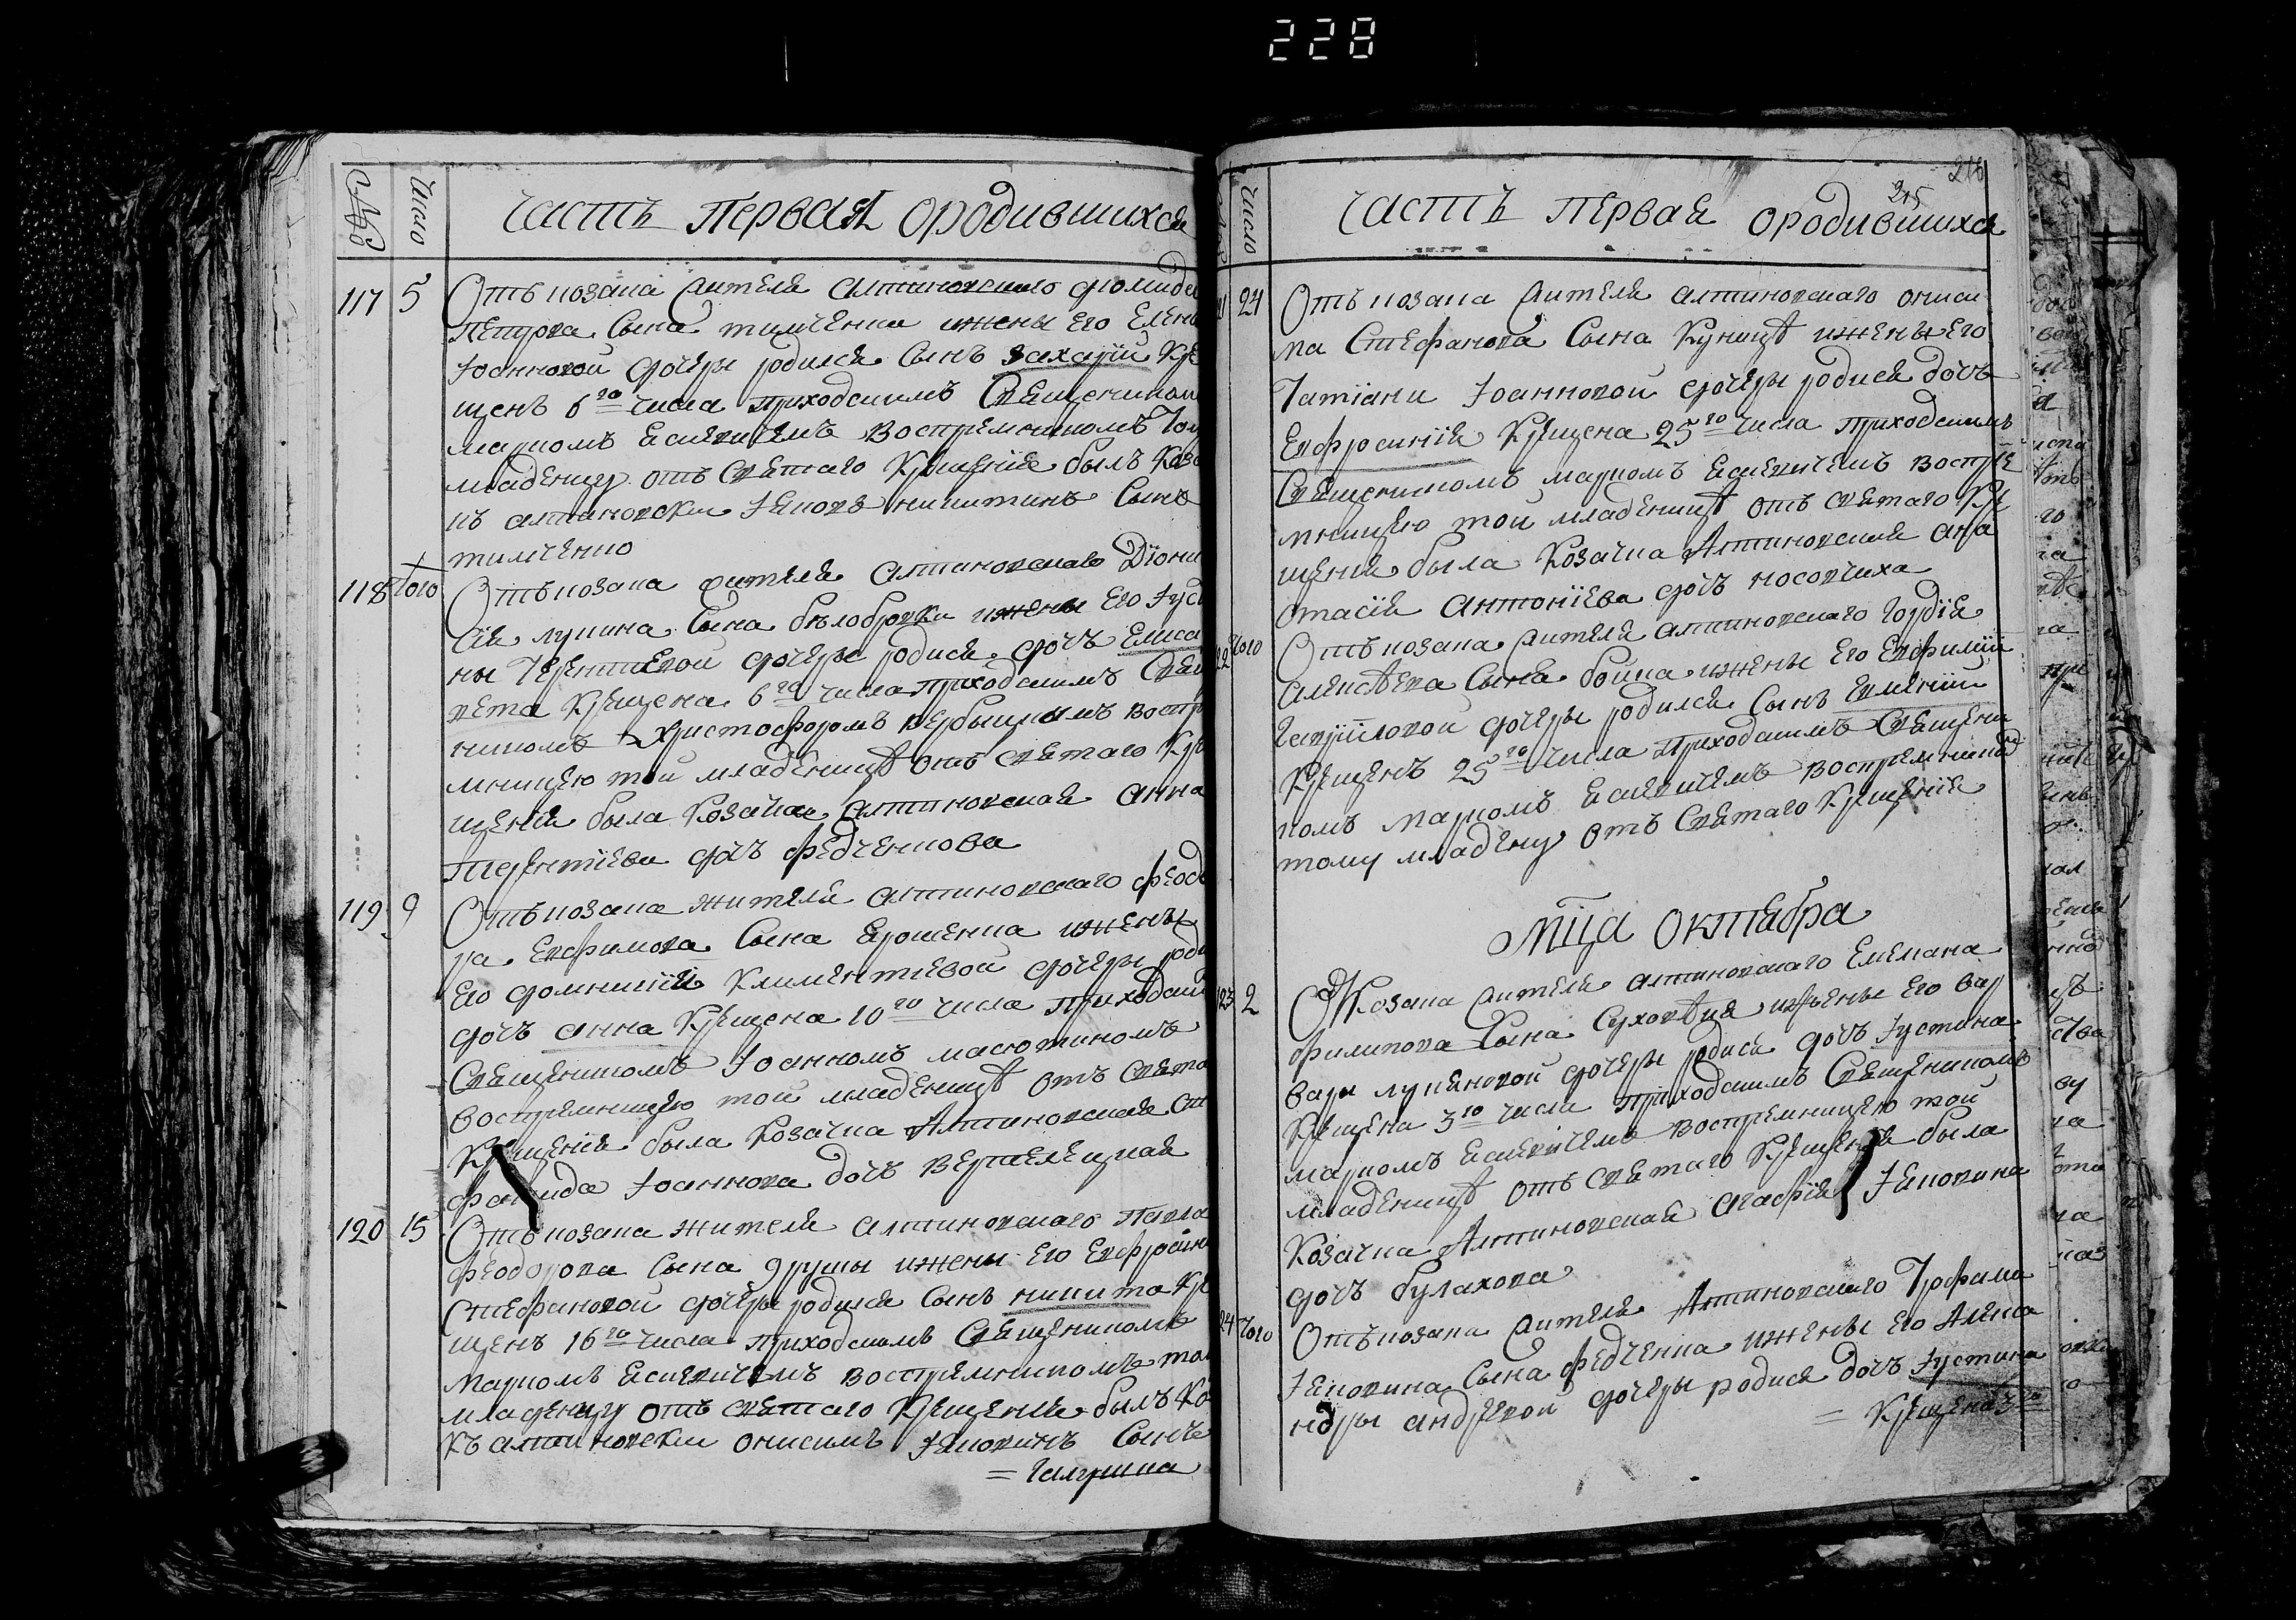 228
Число
Часть первая ородившихся
117 5 Отъ козака жителя алтиновского
Петрова Сына тимченка ижены его Елены
Іоанновой дочеры родился Сынъ Захарій Кре
щенъ 6го числа приходскимъ Священником
Маркомъ Василевичемъ Воспремникомъ Том
младенцу отъ Святаго Крещенія былъ Коза
къ алтиновски Яковъ никитинъ Сынъ
тимченко
118 того Отъ козака жителя Алтиновскаго Діони
сія лукина Сына бѣлобровки ижены его Іусти
ны Терентиевой дочеры родися дочъ Елиса
вета Крещена 6го числа приходскимъ Свящ
никомъ Христофоромъ вербыцкымъ воспр
мницею той младеницѣ отъ Святаго Кре
щенія была Козачка Алтиновская анна
Терентіева дочъ федченкова
119 9 Отъ козака жителя алтиновскаго феодо
ра Евфимова Сына Ярошенка ижены
Его домникіи Климентіевой дочеры роди
дочъ анна Крещена 10го числа приходским
Священикомъ Іоанномъ масютиномъ
воспремницею той младеницѣ отъ Свята
Крещенія была Козачка Алтиновская
Іоаннова дочъ
120 15 Отъ козака жителя алтиновскаго Павла
феодорова Сына ижены Его Евфросині
Стефановой дочеры родился Сынъ никита Кре
щенъ 16го числа приходскимъ Священикомъ
Маркомъ Василевичемъ воспремникомъ том
младенцу отъ Святаго Крещенія былъ Ко
къ алтиновски онисимъ Яковинъ Сынъ
= Галушка
Число
Часть первая ородившихся
215
216
21 24 Отъ козака жителя алтиновскаго ониси
ма Стефанова Сына Куницѣ ижены Его
Татіани Іоанновой дочеры родися дочъ
Евфросинія Крещена 25го числа приходскимъ
Священикомъ маркомъ Василевичемъ воспре
мницею той младеницѣ отъ святаго Кре
щенія была Козачка Алтиновская ана
стасія Антоніева дочъ носовчиха
22 того Отъ козака жителя алтиновского Гордія
алексѣева Сына бойка ижены его Евфиміи
Гавріиловой дочеры родился Сынъ Евменій
Крещенъ 25го числа приходскимъ Священи
комъ маркомъ Василевичемъ воспремникомъ
тому младенцу отъ Святаго Крещенія
Мца Октабра
123 2 От Козака жителя алтиновскаго Емелиана
филипова Сына Суховѣя ижены Его вар
вары лукяновой дочеры родися дочъ Іустина
Крещена 3го числа приходскимъ Священикомъ
маркомъ Василевичемъ воспремницею той
младеницѣ отъ святаго Крещенія была
Козачка Алтиновская агафія Яковина
дочъ булахова
24 того Отъ козака жителя Алтиновскаго Трофима
Яковина Сына федченка ижены его Алекса
ндры андреевой дочеры родися дочъ Іустина
= Крещена 3го